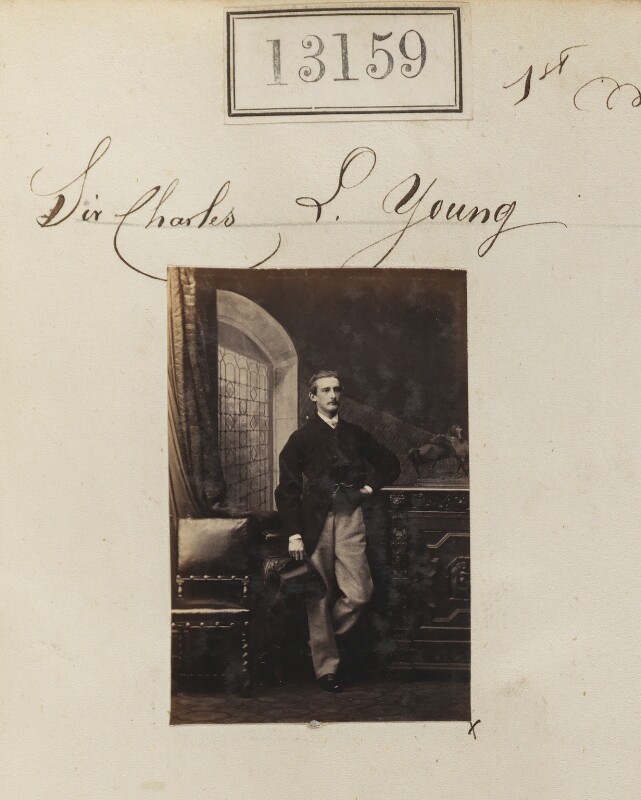 13159
1st
Sir Charles L. Young
x